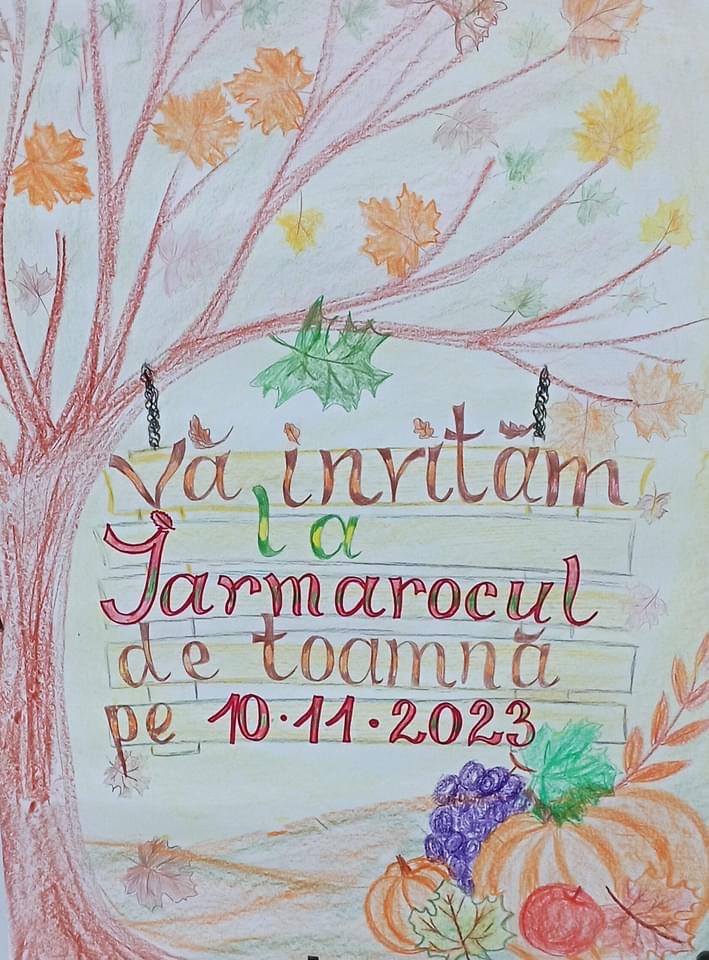 Vă invităm
la
Jarmarocul
de toamnă
pe 10.11.2023